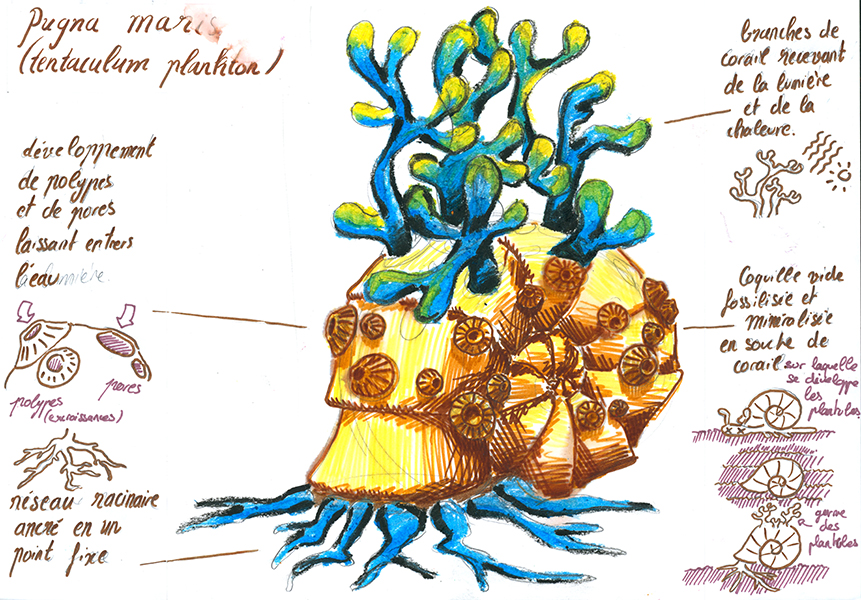 Pugna maris
(tentaculum plankton)
développement
de polypes
et de pores
laissant entrers
l'eau
polypes
(excroissances)
pores
réseau racinaire
ancré en un
point fixe
branches de
corail recevant
de la lumière
et de la
chaleure.
Coquille vide
fossilisée et
minéralisée
en souche de
corail sur laquelle
se développe
les
plantoles
germe
des
plantoles